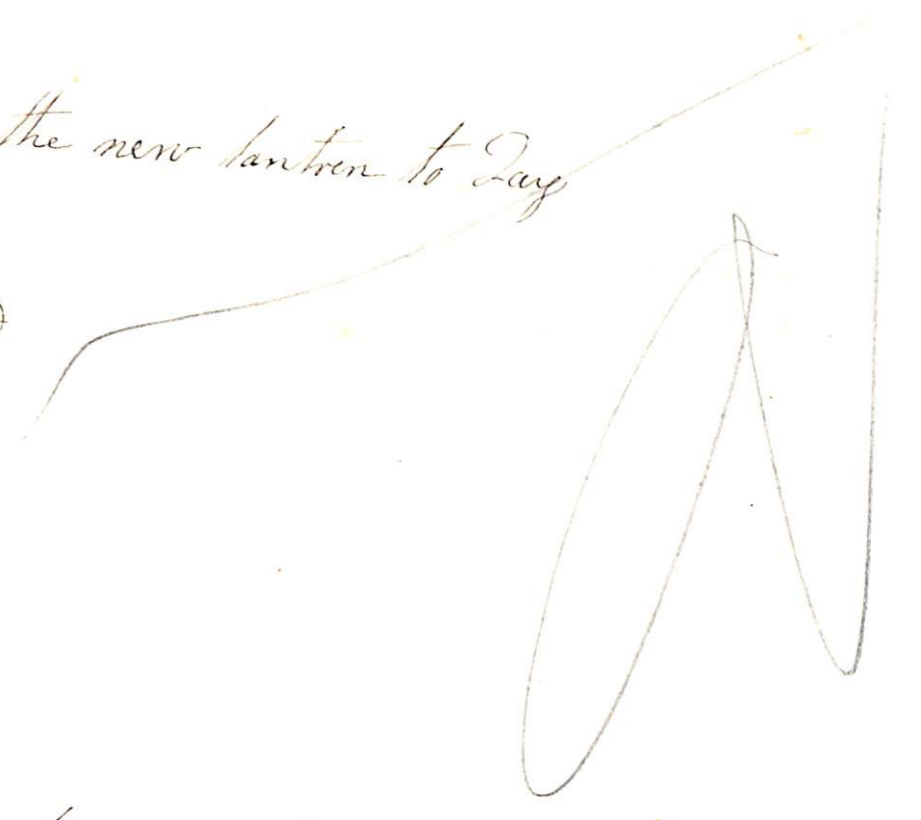 the new lantren to Day